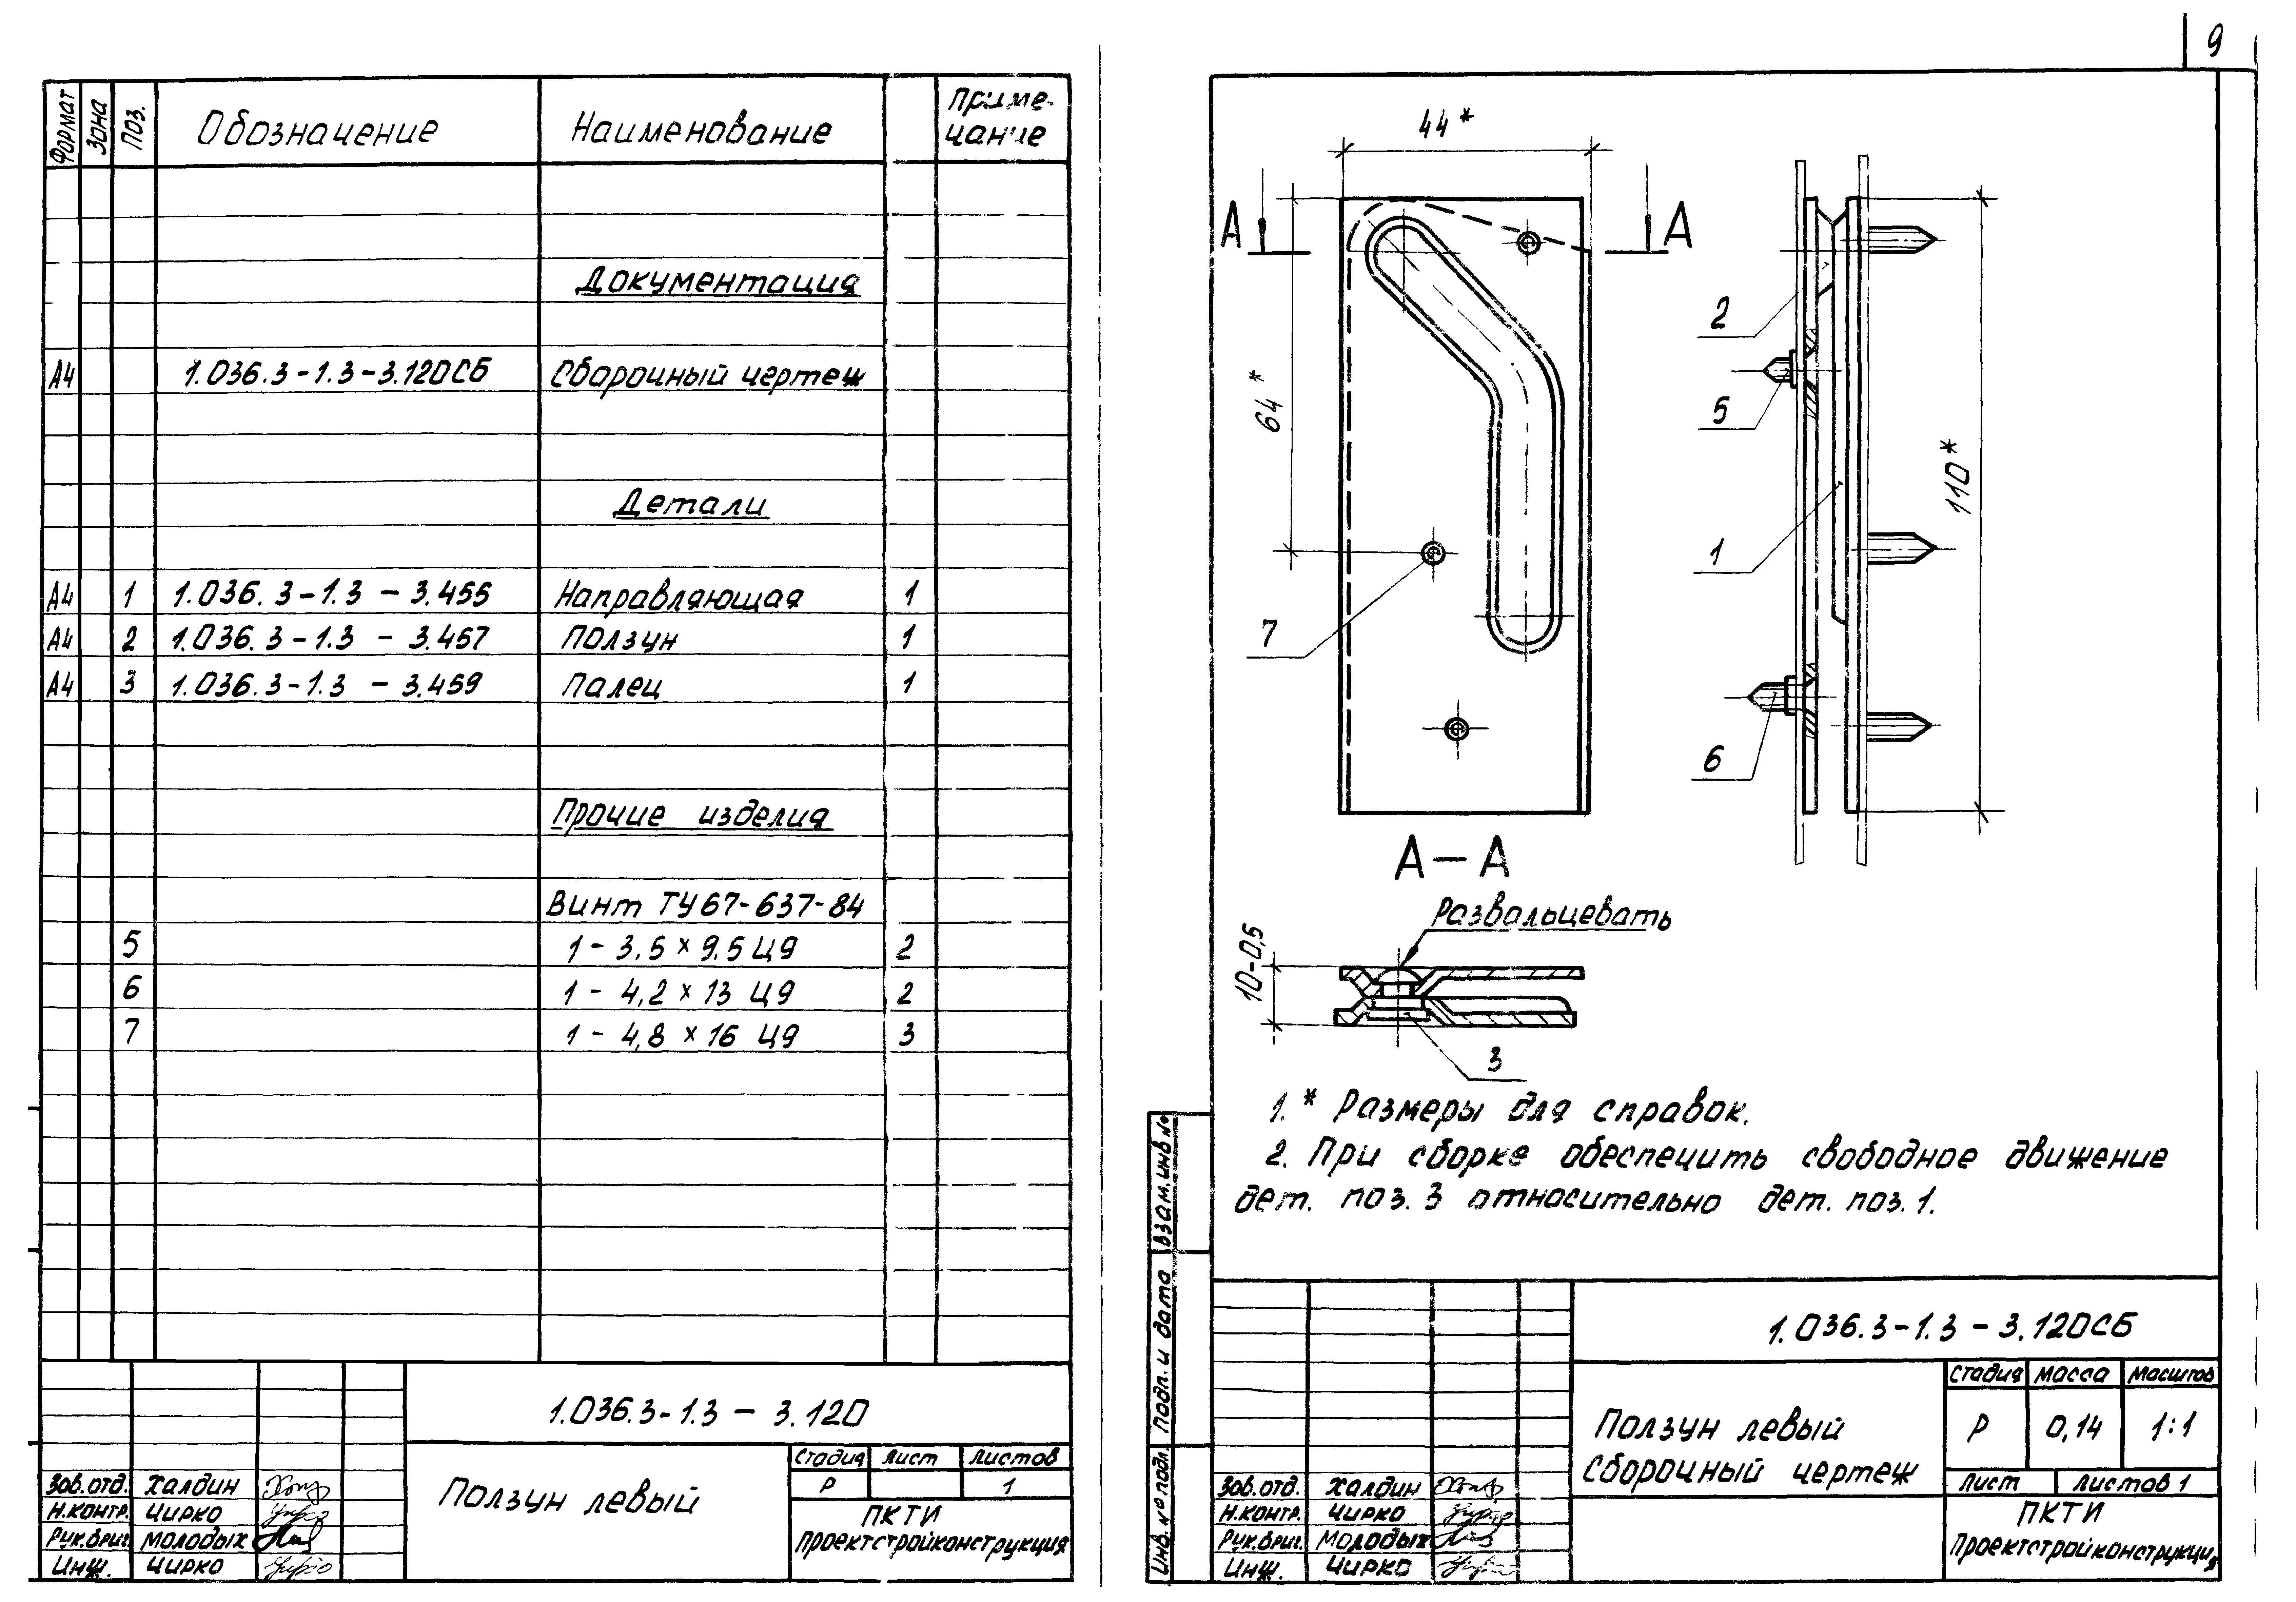 9
Формат Зона Поз. Обозначение Наименование Приме-
чание
Документация
А4 1.036.3-1.3-3.120СБ Сборочный чертеж
Детали
А4 1 1.036.3-1.3 - 3.455 Направляющая 1
А4 2 1.036.3-1.3 - 3.457 Ползун 1
А4 3 1.036.3-1.3 - 3.459 Палец 1
Прочие изделия
Винт ТУ67-637-84
5 1-3,5×9,5 Ц9 2
6 1-4,2×13 Ц9 2
7 1-4,8×16 Ц9 3
1.036.3-1.3 - 3.120
Ползун левый
Стадия Лист Листов
Р 1
ПКТИ
Проектстройконструкция
Зав.отд. Халдин
Н.контр. Чирко
Рук.бриг. Молодых
Инж. Чирко
44*
А А
64*
110*
2
5
1
7
6
А-А
Развальцевать
10-0,5
3
1. * Размеры для справок.
2. При сборке обеспечить свободное движение
дет. поз. 3 относительно дет. поз. 1.
Взам.инв№
Подп. и дата
Инв.№ подл.
1.036.3-1.3 - 3.120СБ
Ползун левый
Сборочный чертеж
Стадия Масса Масштаб
Р 0,14 1:1
Лист Листов 1
ПКТИ
Проектстройконструкция
Зав.отд. Халдин
Н.контр. Чирко
Рук.бриг. Молодых
Инж. Чирко